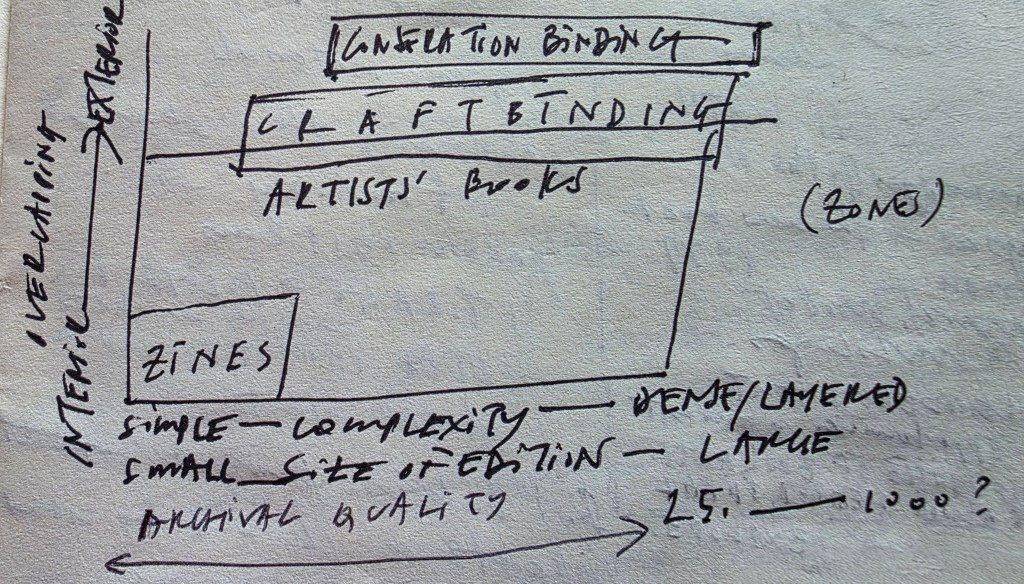 CONSERATION BINDING
CRAFT BINDING
ARTISTS' BOOKS
(ZONES)
OVERLAPPING
INTERIOR → EXTERIOR
ZINES
SIMPLE — COMPLEXITY — DENSE/LAYERED
SMALL — SIZE OF EDITION — LARGE
ARCHIVAL QUALITY 25. — 1000?